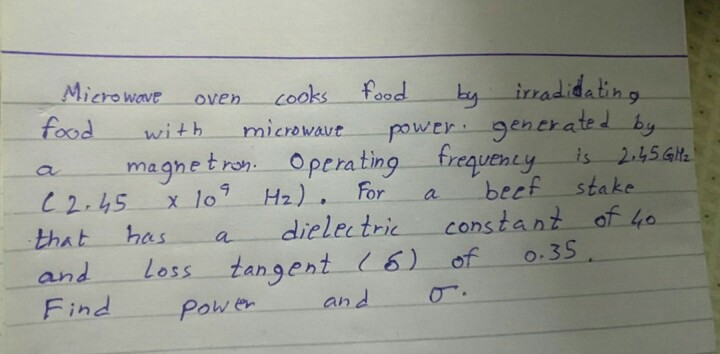 Microwave oven cooks food by irradidating
food with microwave power. generated by
a magnetron. Operating frequency is 2.45 GHz
(2.45 x 10⁹ Hz). For a beef stake
that has a dielectric constant of 40
and Loss tangent (δ) of 0.35.
Find power and σ.